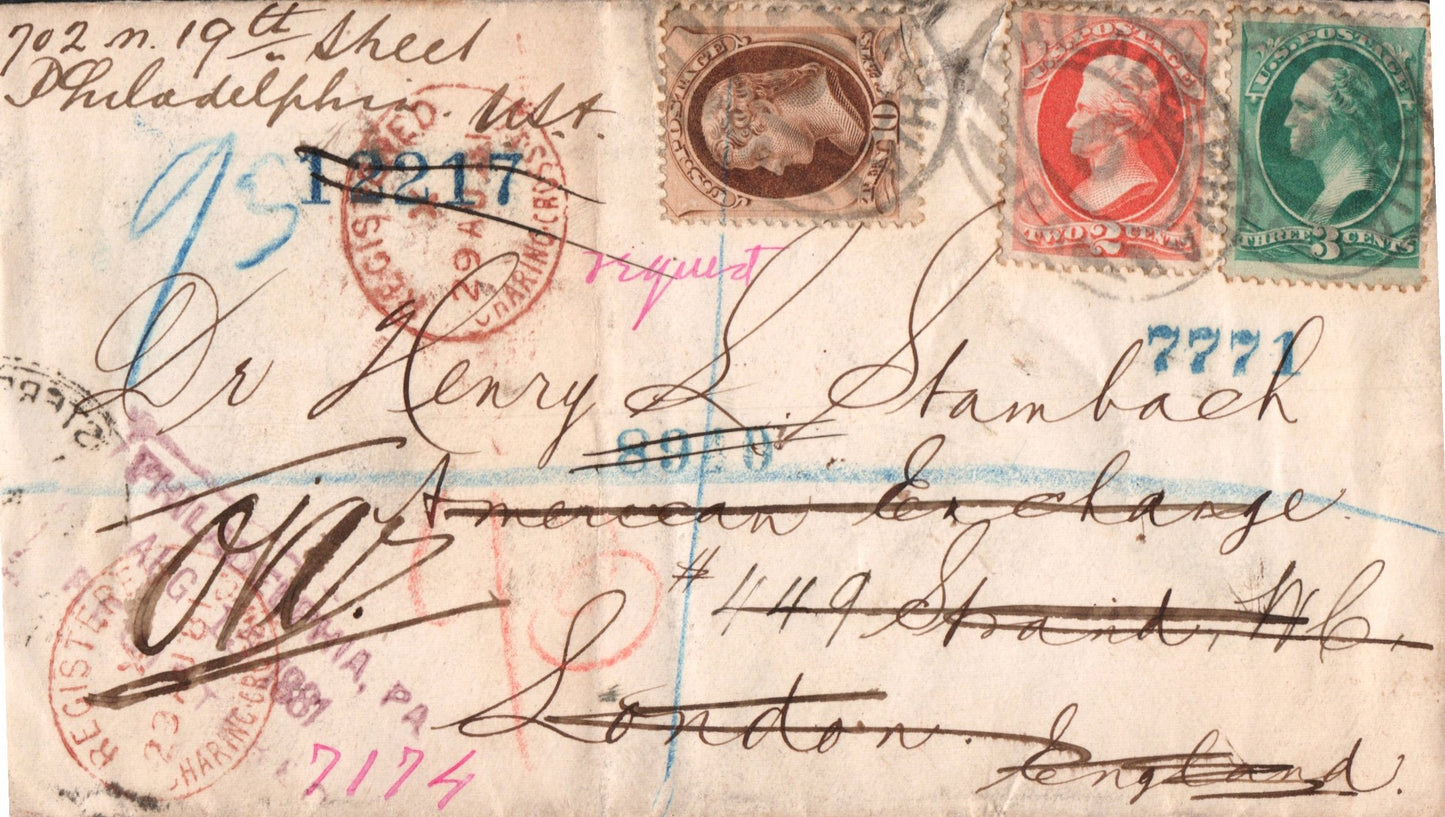 702 N. 19th Street
Philadelphia. U.S.A.
95
12217
REGISTERED
29 AU
CHARING CROSS
U.S. POSTAGE
10 CENTS
U.S. POSTAGE
TWO 2 CENTS
U.S. POSTAGE
THREE 3 CENTS
request
7771
Dr Henry L. Stambach
8910
American Exchange.
#449 Strand, W.C.
London.
England.
PHILADELPHIA, PA
AUG
1881
REGISTERED
29 AU 81
CHARING CROSS
7174